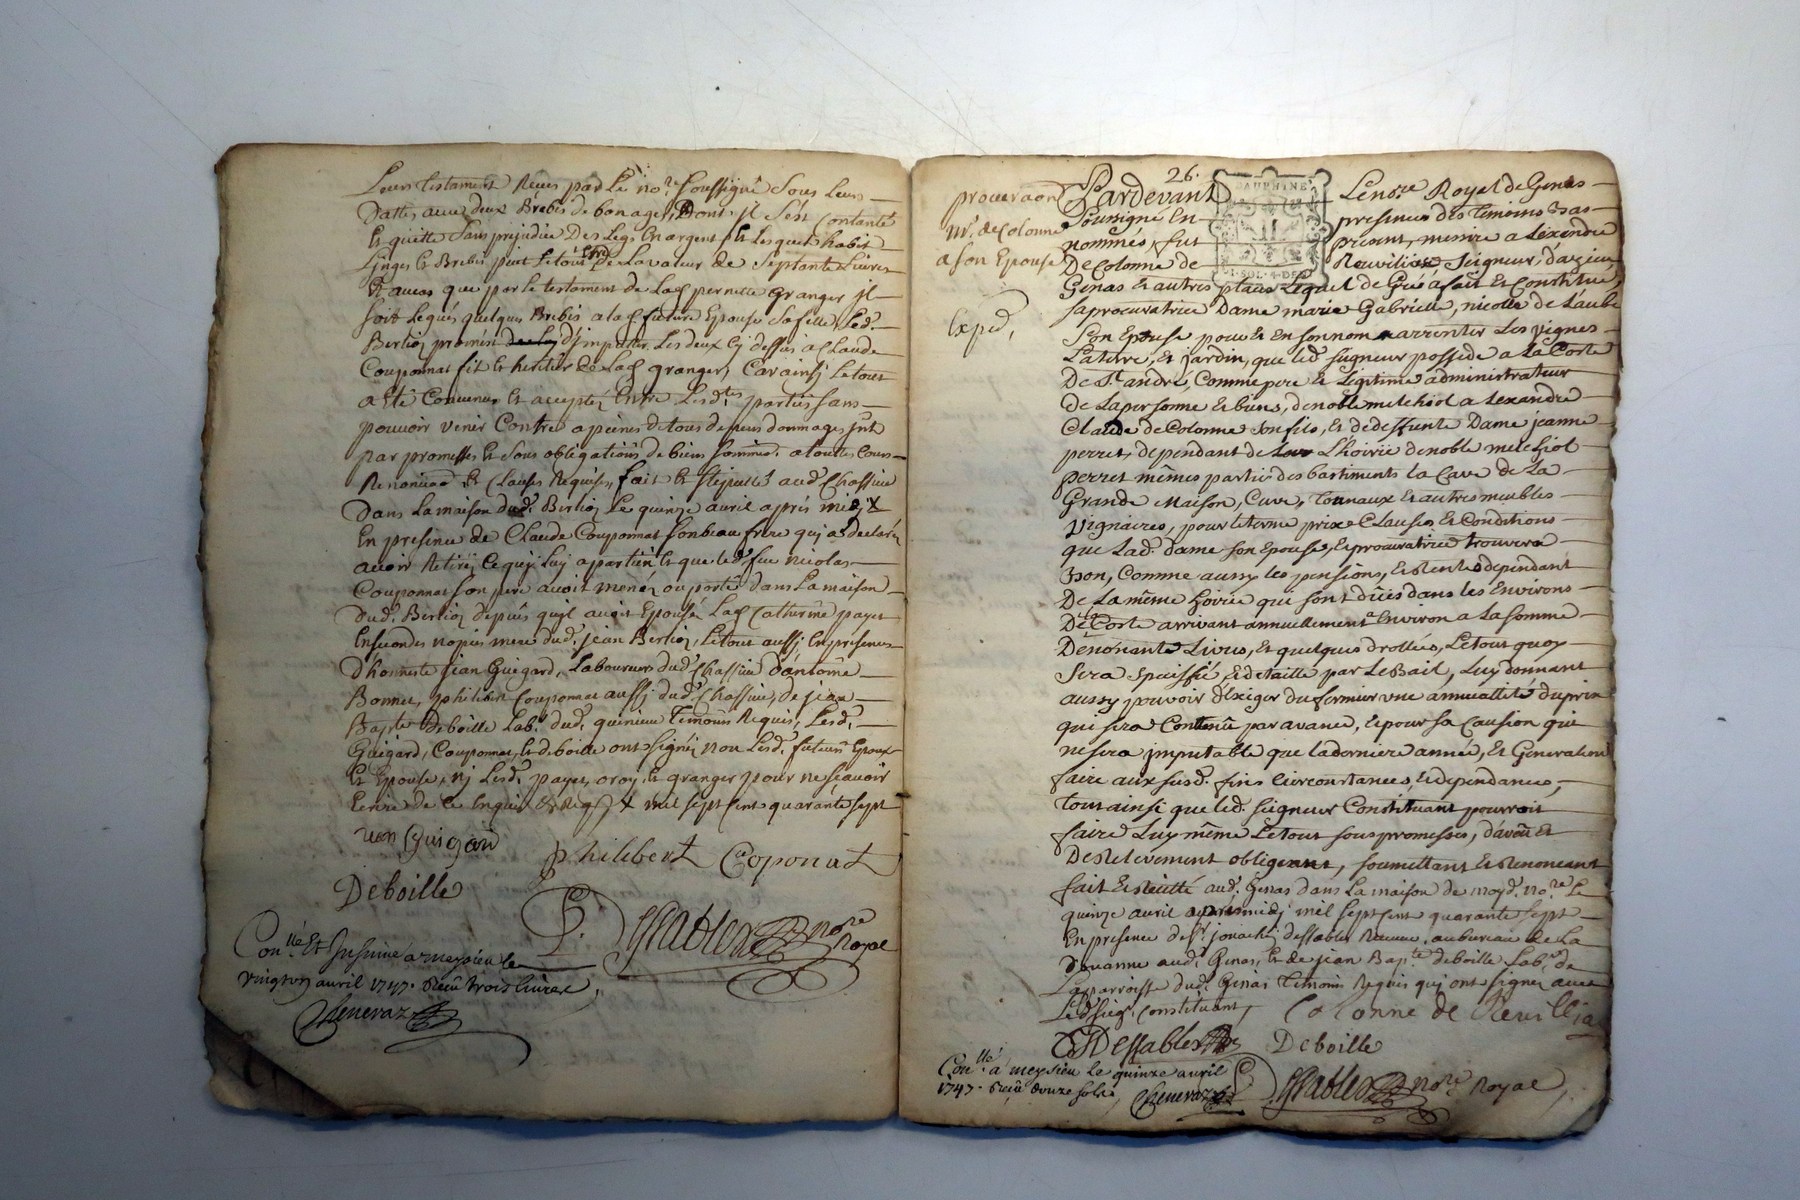 Leurs testaments Reçus par Le no.re soussigné Sous Leurs
Dattes avec deux Brebis de bon age, Dont jl s'est Contanté
Et quitte sans prejudice Des Legs En argent Et Lesquels habit
Linges Et Brebis peut le tout Etre de La valeur de septante Livres
Et au cas que par le testament de Lad pernette Granger jl
soit Legués quelques Brebis a lad future Epouse sa fille, Led.
Berlioz promêt d'jmputter Les deux cy dessus a Claude
Couponnat fils Et heritier de Lad granger, Car ainsj Le tout
a Eté Convenus Et acceptez Entre Lesd.tes parties sans
pouvoir venir Contre a peines de tous depens dommages jnt
par promesses Et sous obligations de biens soumiss. a touttes Cours
Renonciaõn Et Clauses Requises, fait Et stipullé aud. Chassieu
Dans La maison dud. Berlioz Le quinze avril aprés midy
En presence de Claude Couponnat son beau frere quj a declaré
avoir Retiré Ce quj Luy apartient Et que led. feu nicolas
Couponnat son pere avoit menéz ou porté dans La maison
dud. Berlioz depuis qu'jl avoit Epousé Lad Catherine payet
En secondes nopces mere dud. jean Berlioz, Le tout aussj En presence
D'honneste jean Guigard, Laboureur dud. Chassieu d'antoine
Bonnet, philibert Couponnat aussj dud. Chassieu, de jean
Bapt.e Deboille Lab.r dud. quinieu Temoins Requis, Lesd.
Guigard, Couponnat, Et deboille ont signéz non Lesd. futeurs Epoux
Et Epouse, nj Lesd. payet, oroy, Et granger pour ne sçavoir
Ecrire de Ce Enquis Et Requis mil sept cent quarante sept
jean Guigard
philibert Coponat
Deboille
P. DesSables no.re Royal
Con.llé Et Insinué a meysieu le
vingt avril 1747. Reçu trois livres,
Cheneraz
26.
DAUPHINÉ
UN.SOL.4.DEN
procuraõn
M.r de Colonne
a son Epouse
Expéd.
Pardevant Le no.re Royal de Genas
Soussigné En presences des Temoins Bas
nommés, fut present, messire alexandre
De Colonne de Reuviliase Seigneur, d'azieu
Genas Et autres places Lequel de Gré a fait Et Constitué,
sa procuratrice Dame marie Gabrielle, nicolle de Laube
Son Epouse pour Et En son nom arrenter Les Vignes
La terre, Et jardin, que led. seigneur possede a la Coste
De S.t andré, Comme pere Et Legitime administrateur
de La personne Et biens, de noble melchiol alexandre
Claude de Colonne son fils, Et de deffunte Dame jeanne
perret, dependant de L'hoirie de noble melchiol
perret mêmes parties des bastiments la Cave de La
Grande Maison, Cuve, Tonnaux Et autres meubles
Vignaires, pour le terme prix Clauses Et Conditions
que Lad. dame son Epouse, Et procuratrice trouvera
Bon, Comme aussy les pensions, Et Rentes dependant
De La même hoirie qui sont dües dans les Environs
De la Coste arrivant annuellement a Environ a La somme
De nonante Livres, Et quelques drollées, Le tout quoy
Sera speciffié, Et detaillé par Le Bail, Luy donnant
aussy pouvoir d'Exiger du fermier une annuallité du prix
qui sera Contenu par avance, Et pour sa Caution qui
ne sera jmputable que la derniere année, Et Generalement
faire aux susd. fins Circonstances, Et dependances,
Tout ainsi que led. Seigneur Constituant pourroit
faire Luy même Le tout sous promesses, d'aveu Et
De Relevement obligeant, soumettant Et Renonceant
fait Et Recitté aud. Genas dans La maison de moyd. no.re Le
quinze avril apres midj mil sept cent quarante sept
En presence de s.r jonachin dessables Receveur au bureau de La
Douanne aud. Genas, Et de jean Bap.te deboille Lab.r de
La parroisse dud. Genas Temoins Requis quj ont signéz avec
Led. seig.r Constituant,
Colonne de Reuvillia
Dessables
Deboille
Con.llé a meysieu le quinze avril
1747. Reçu douze sols, Cheneraz
DesSables no.re Royal,